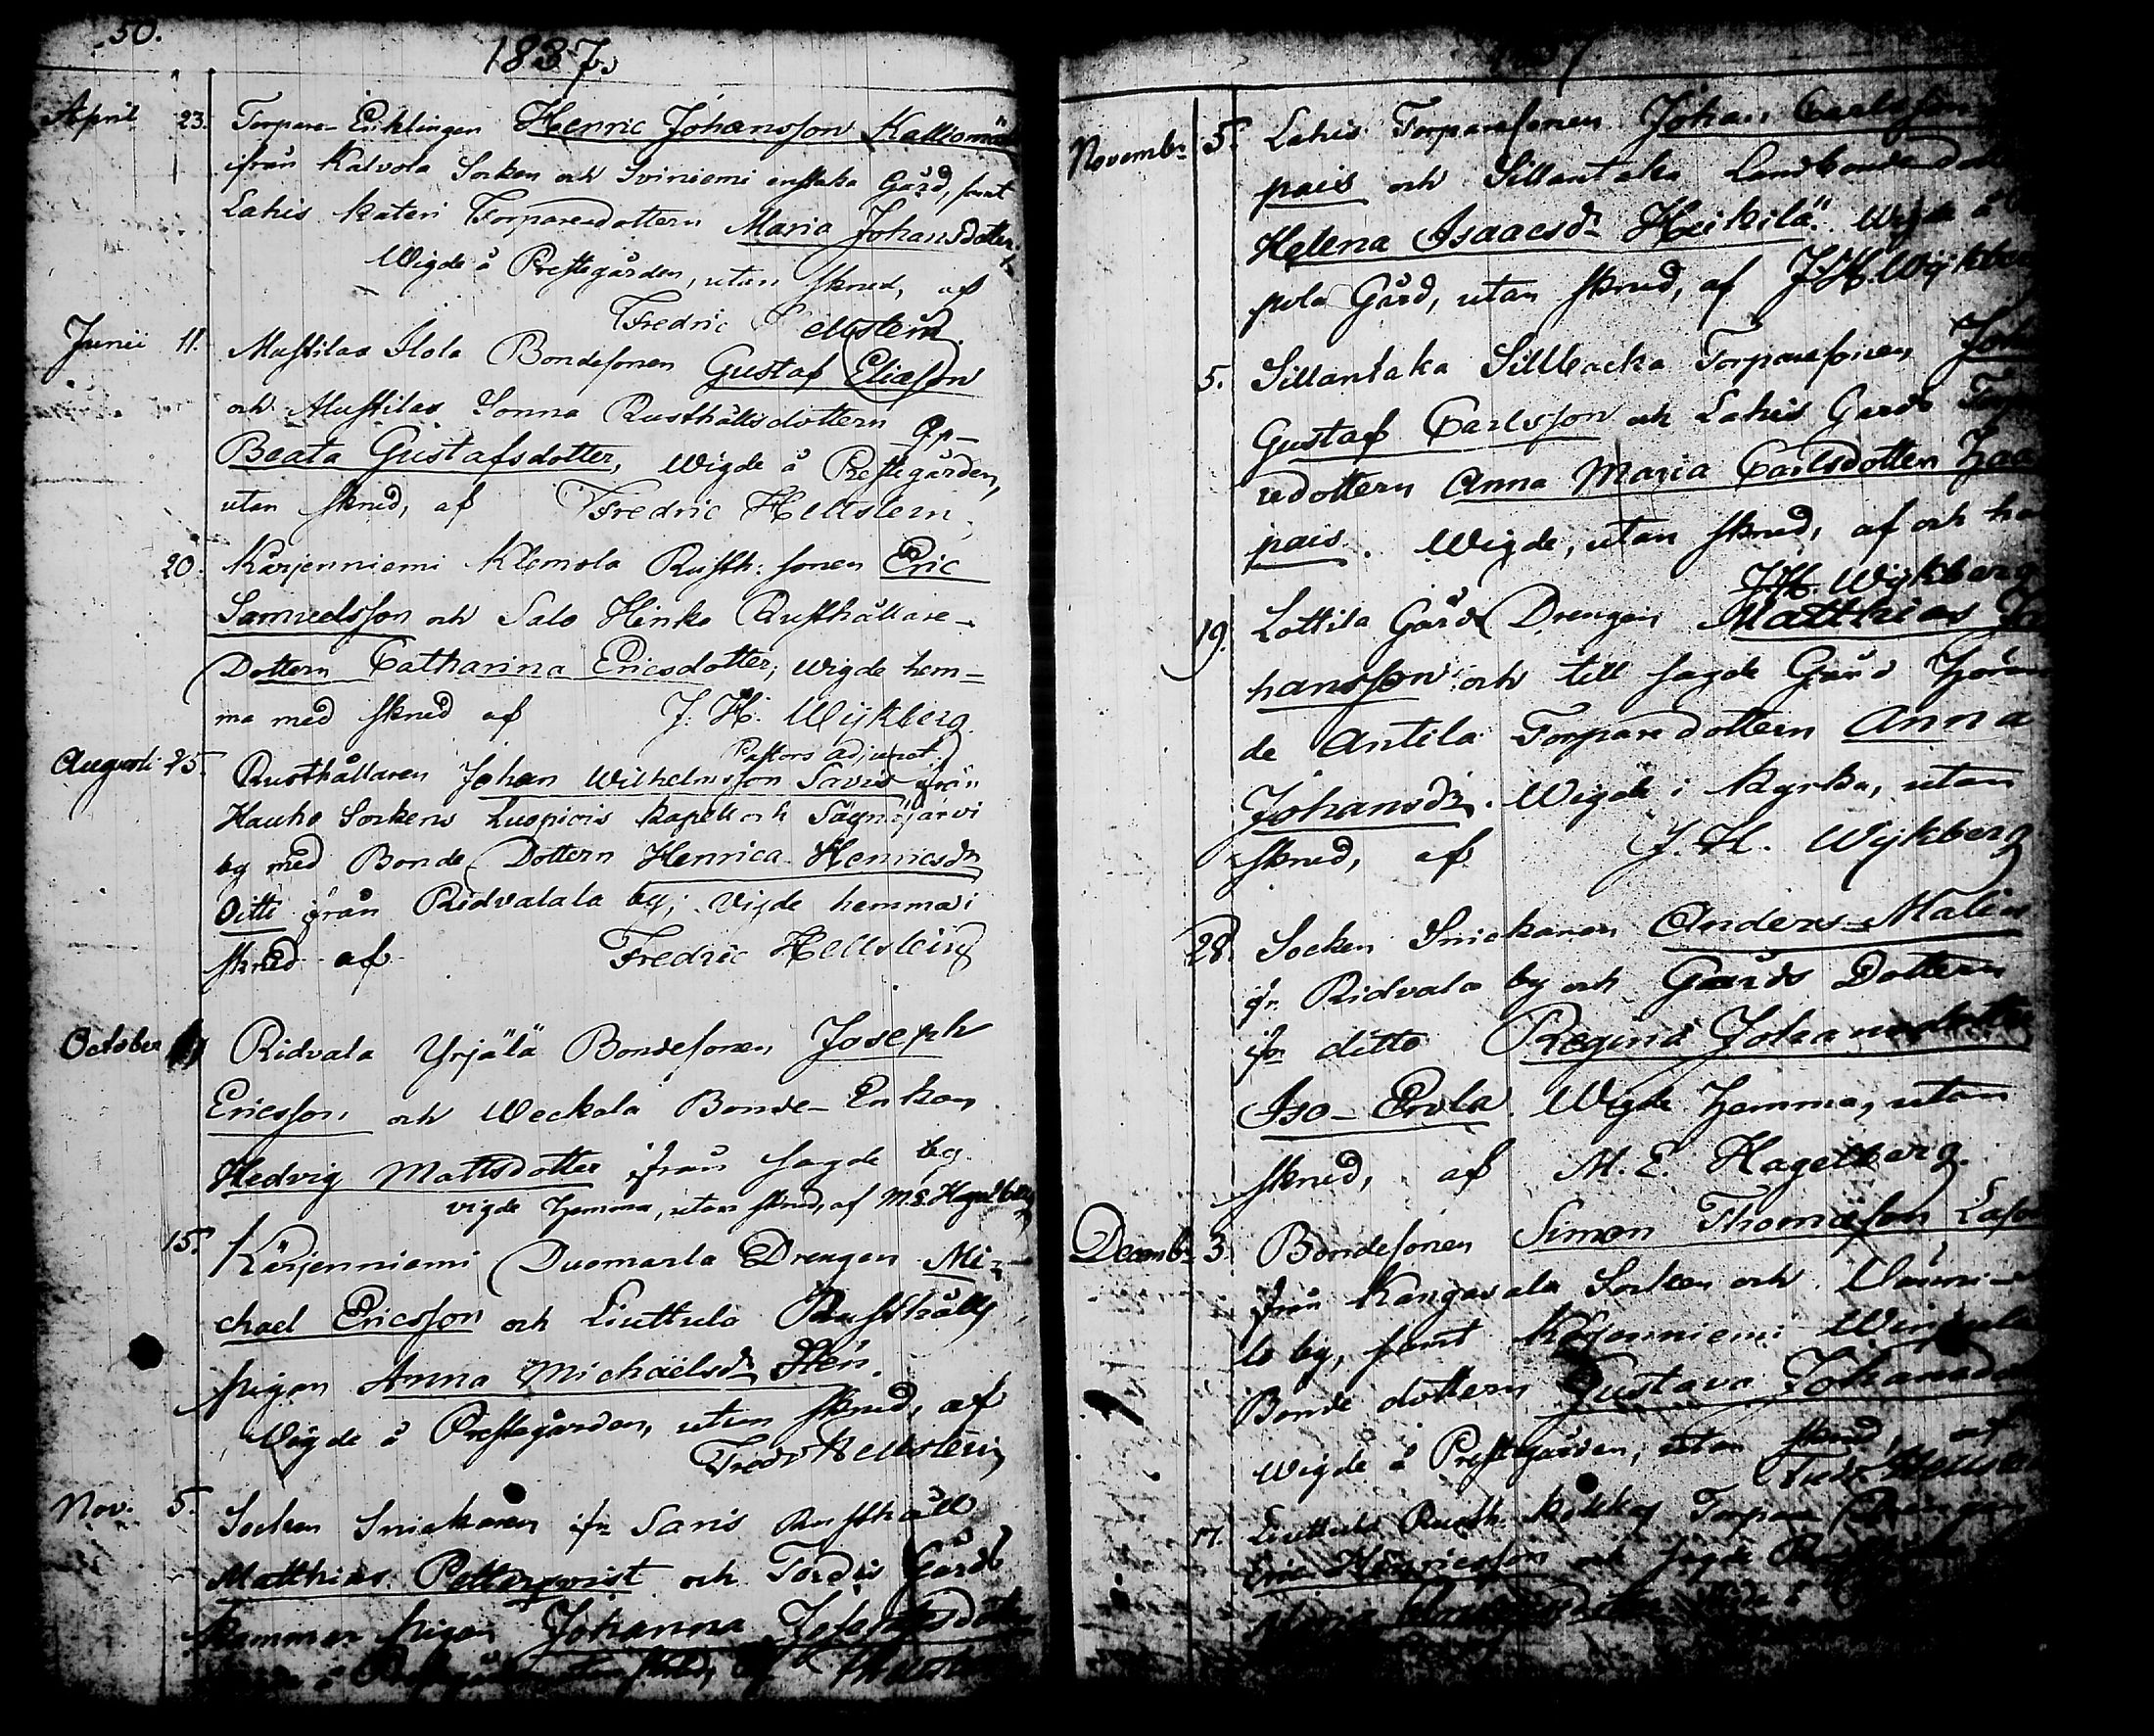 50.
1837.
April 23. Torpare-Enklingen Henric Johansson
från Kalvola Socken och Sviniemi enstaka Gård, samt
Lahis Kateri Torparedottern Maria Johansdotter.
Wigde å Prestegården, utan skrud, af
Fredric Hellstein.
Junii 11. Mustilas Ilola Bondesonen Gustaf Eliæson
och Mustilas Sonna Rusthållsdottern
Beata Gustafsdotter, Wigde å Prestegården,
utan skrud, af Fredric Hellstein.
20. Kärjenniemi Klemola Rusth: sonen Eric
Samuelsson och Salo Heinko Rusthållare-
Dottern Catharina Ericsdotter; wigde hem-
ma med skrud af J. H. Wijkberg.
Pastors adjunct
Augusti 25. Rusthållaren Johan Wilhelmsson Savis från
Hauho Sockens Luopiois kapell och
by med Bonde Dottern Henrica Henricsdr
Oitti från Ridvalala by; Vigde hemma i
skrud af Fredric Hellstein
October Ridvala Yrjälä Bondesonen Joseph
Ericsson och Weckala Bonde-Enkan
Hedvig Mattsdotter från sagde by.
vigde hemma, utan skrud, af M. E. Hagelberg
15. Kärjenniemi Duomarla Drengen Mi-
chael Ericsson och Liuttula Rusthålls
pigan Anna Michaelsdr Hén.
Wigde å Prestegården, utan skrud, af
Fredr Hellstein
Nov. 5. Socken Snickaren ifrn Saris Rusthåll
Matthias Petterqvist och Gårds
Kammar pigan Johanna
Novembr 5. Lahis Torparesonen Johan Carlsson
pais och Sillantaka
Helena Isaacsdr Heikilä. Wigde å
pola Gård, utan skrud, af J. H. Wijkberg
5. Sillantaka Sillbacka Torparesonen
Gustaf Carlsson och Lahis Gårds
redottern Anna Maria Carlsdotter
pais. Wigde, utan skrud, af och
J. H. Wijkberg
19. Lottila Gårds Drengen Matthias
hansson och till sagde Gård
de Antila Torparedottern Anna
Johansdr. Wigde i Kyrka, utan
skrud, af J. H. Wijkberg
28. Socken Snickaren Anders Malin
fr. Ridvala by och Gårds Dottern
fr ditto Regina Johansdotter
Iso-Erola. Wigde hemma, utan
skrud, af M. E. Hagelberg.
Decembr 3. Bondesonen Simon Thomæson
från Kangasala Socken och
la by, samt Kärjenniemi
Bonde dottern Gustava
Wigde å Prestegården, utan skrud, af
17. Liuttula Rusth. Torpare Drengen
Eric Henricsson och sagde
Maria